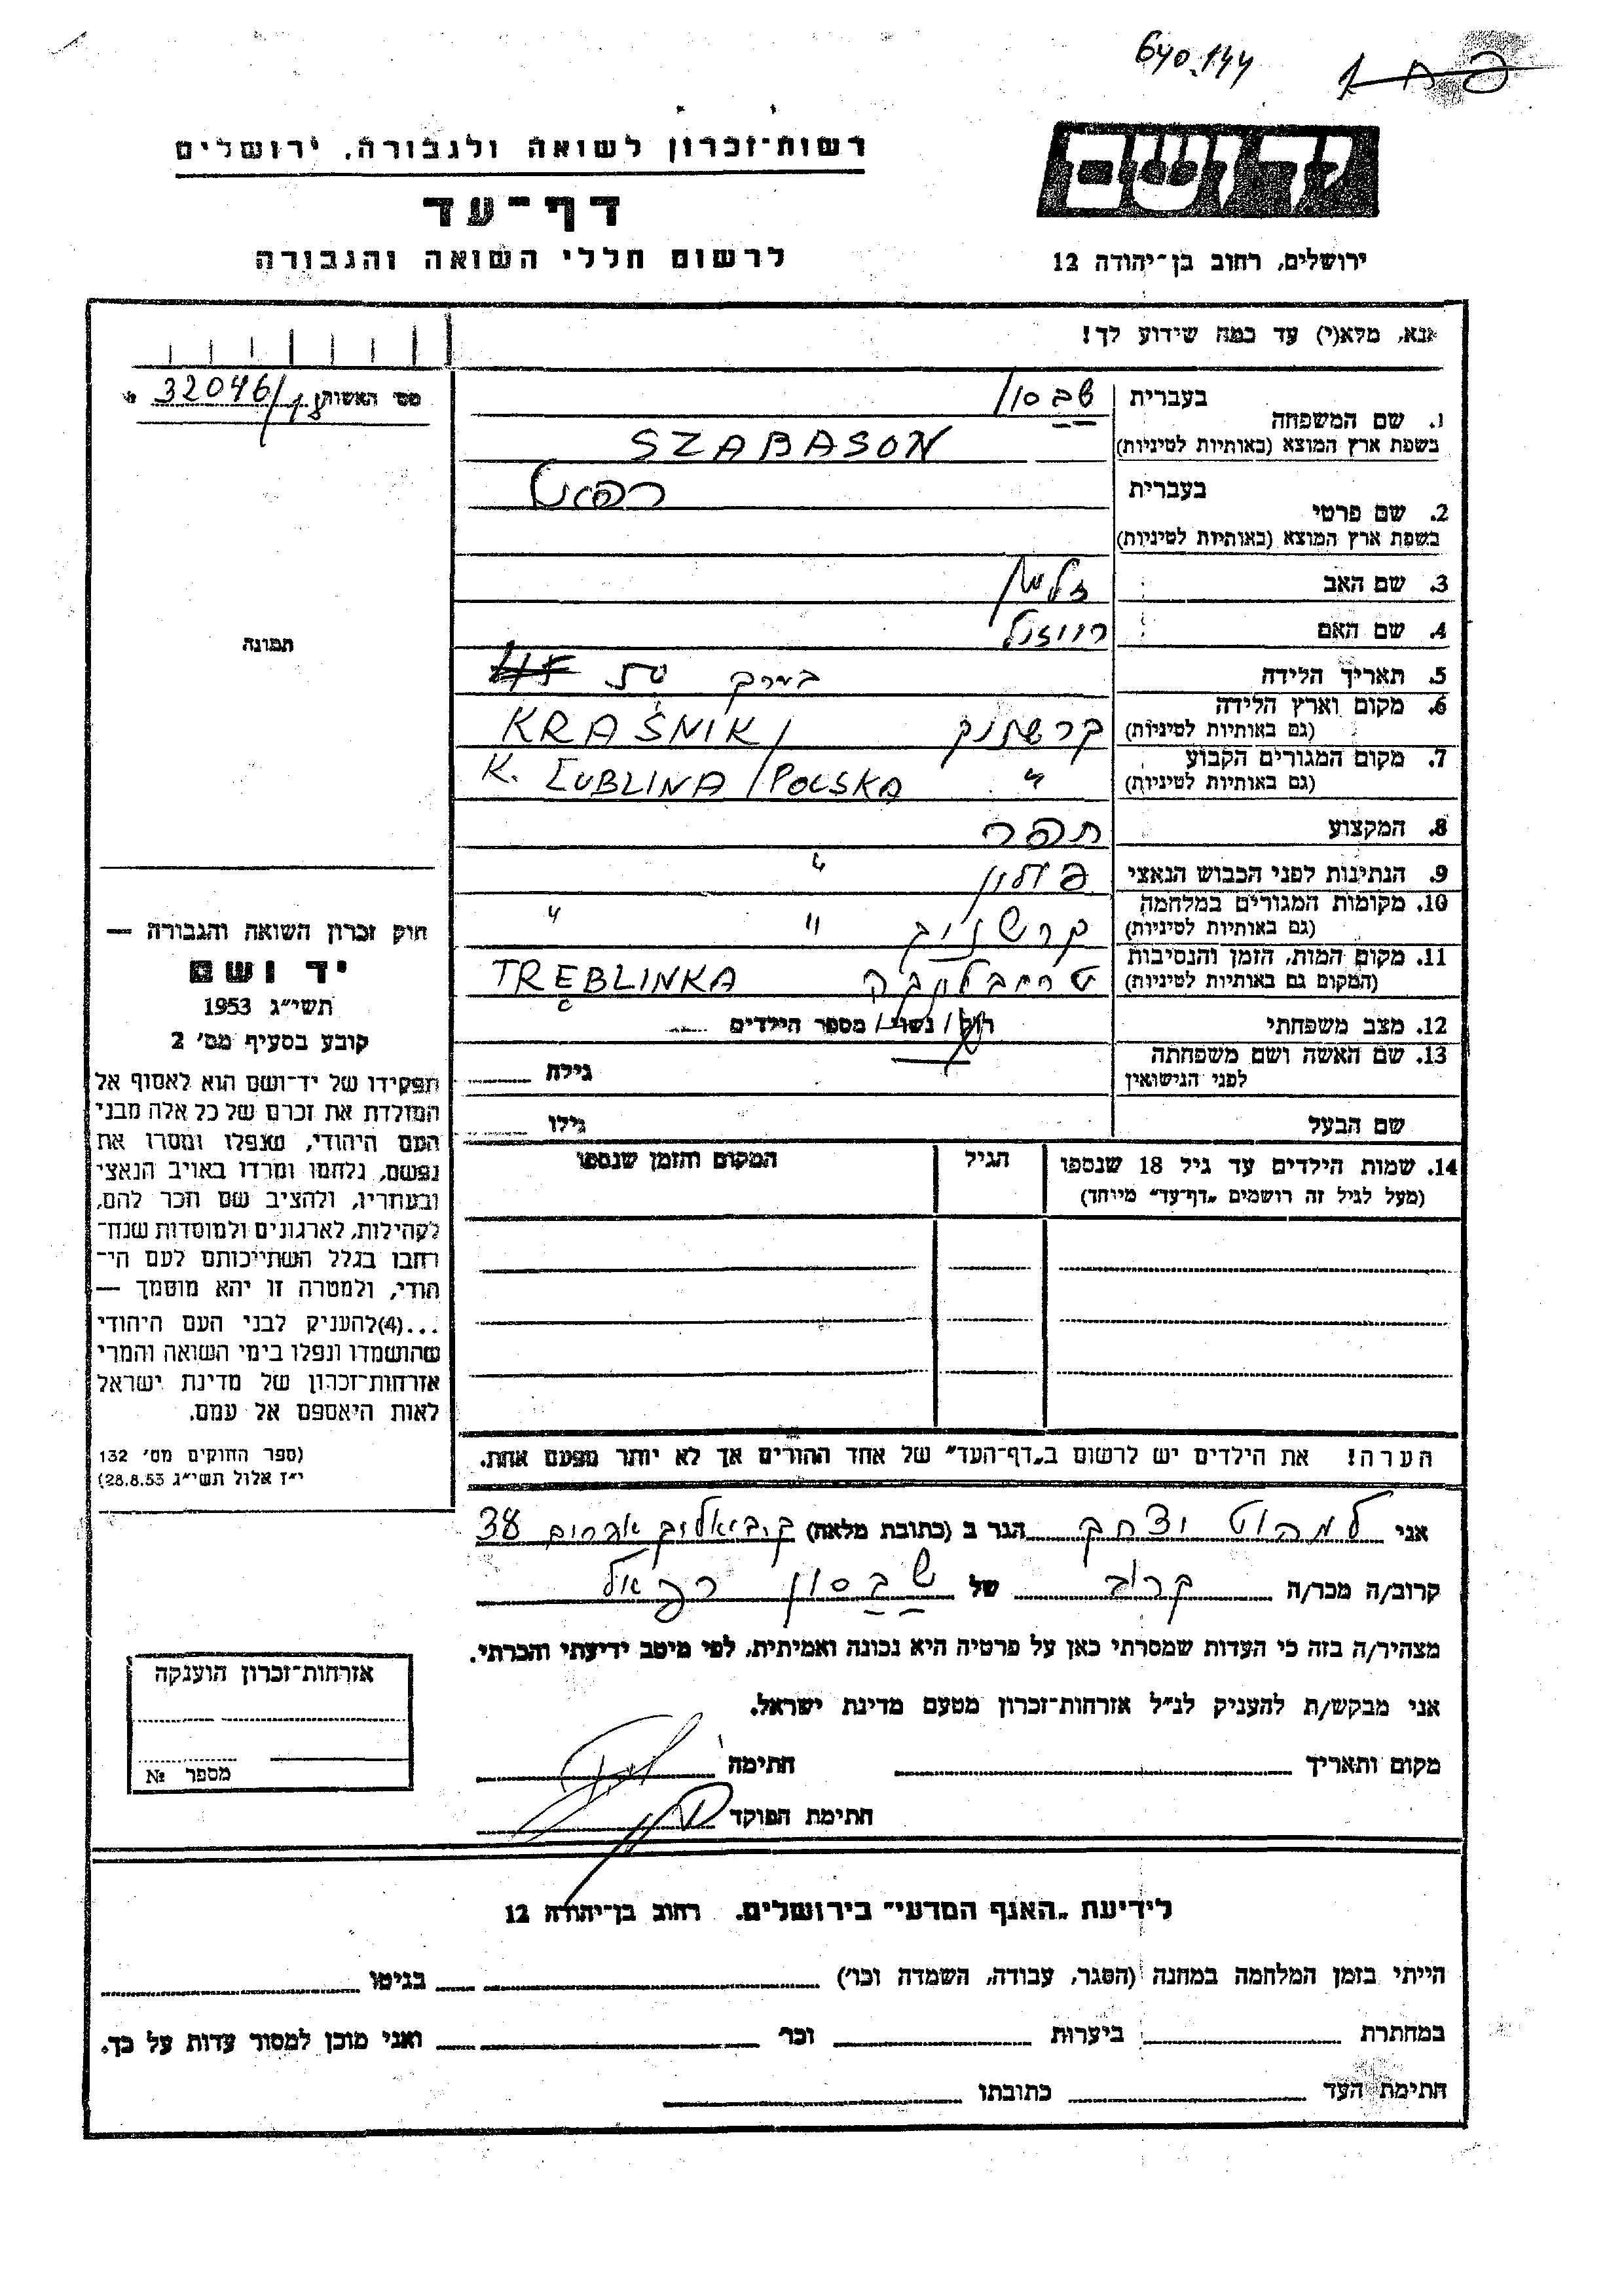 640.144
רשות־זכרון לשואה ולגבורה, ירושלים
דף־עד
לרשום חללי השואה והגבורה
יד ושם
ירושלים, רחוב בן־יהודה 12
אנא, מלא(י) עד כמה שידוע לך!
מס׳ האשות 32046/18
1. שם המשפחה בעברית שבסון
בשפת ארץ המוצא (באותיות לטיניות) SZABASON
2. שם פרטי בעברית רפאל
בשפת ארץ המוצא (באותיות לטיניות)
3. שם האב זלמן
4. שם האם
5. תאריך הלידה בערך 50
6. מקום וארץ הלידה (גם באותיות לטיניות) קרשניק KRAŚNIK/
7. מקום המגורים הקבוע (גם באותיות לטיניות) " K. LUBLINA/POLSKA
8. המקצוע תפר
9. הנתינות לפני הכבוש הנאצי פולין "
10. מקומות המגורים במלחמה (גם באותיות לטיניות) קרשניק " "
11. מקום המות, הזמן והנסיבות (המקום גם באותיות לטיניות) TREBLINKA
12. מצב משפחתי רווק / נשוי / מספר הילדים
13. שם האשה ושם משפחתה לפני הנישואין גילה
שם הבעל גילו
14. שמות הילדים עד גיל 18 שנספו (מעל לגיל זה רושמים „דף־עד” מיוחד) הגיל המקום והזמן שנספו
הערה! את הילדים יש לרשום ב„דף־העד” של אחד ההורים אך לא יותר מפעם אחת.
תמונה
חוק זכרון השואה והגבורה —
יד ושם
תשי״ג 1953
קובע בסעיף מס׳ 2
תפקידו של יד־ושם הוא לאסוף אל
המולדת את זכרם של כל אלה מבני
העם היהודי, שנפלו ומסרו את
נפשם, נלחמו ומרדו באויב הנאצי
ובעוזריו, ולהציב שם וזכר להם,
לקהילות, לארגונים ולמוסדות שנח־
רבו בגלל השתייכותם לעם הי־
הודי, ולמטרה זו יהא מוסמך —
...(4)להעניק לבני העם היהודי
שהושמדו ונפלו בימי השואה והמרי
אזרחות־זכרון של מדינת ישראל
לאות היאספם אל עמם.
(ספר החוקים מס׳ 132
י״ז אלול תשי״ג 28.8.53)
אני יצחק הגר ב (כתובת מלאה) 38
קרוב/ה מכר/ה קרוב של שבסון רפאל
מצהיר/ה בזה כי העדות שמסרתי כאן על פרטיה היא נכונה ואמיתית, לפי מיטב ידיעתי והכרתי.
אני מבקש/ת להעניק לנ״ל אזרחות־זכרון מטעם מדינת ישראל.
מקום ותאריך חתימה
חתימת הפוקד
אזרחות־זכרון הוענקה
מספר №
לידיעת „האגף המדעי” בירושלים. רחוב בן־יהודה 12
הייתי בזמן המלחמה במחנה (הסגר, עבודה, השמדה וכו׳) בגיטו
במחתרת ביערות וכו׳ ואני מוכן למסור עדות על כך.
חתימת העד כתובתו